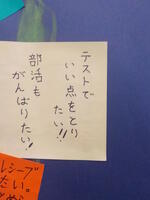 テストで
いい点をとり
たい!!
部活も
がんばりたい!!
ルシーブ
たい。